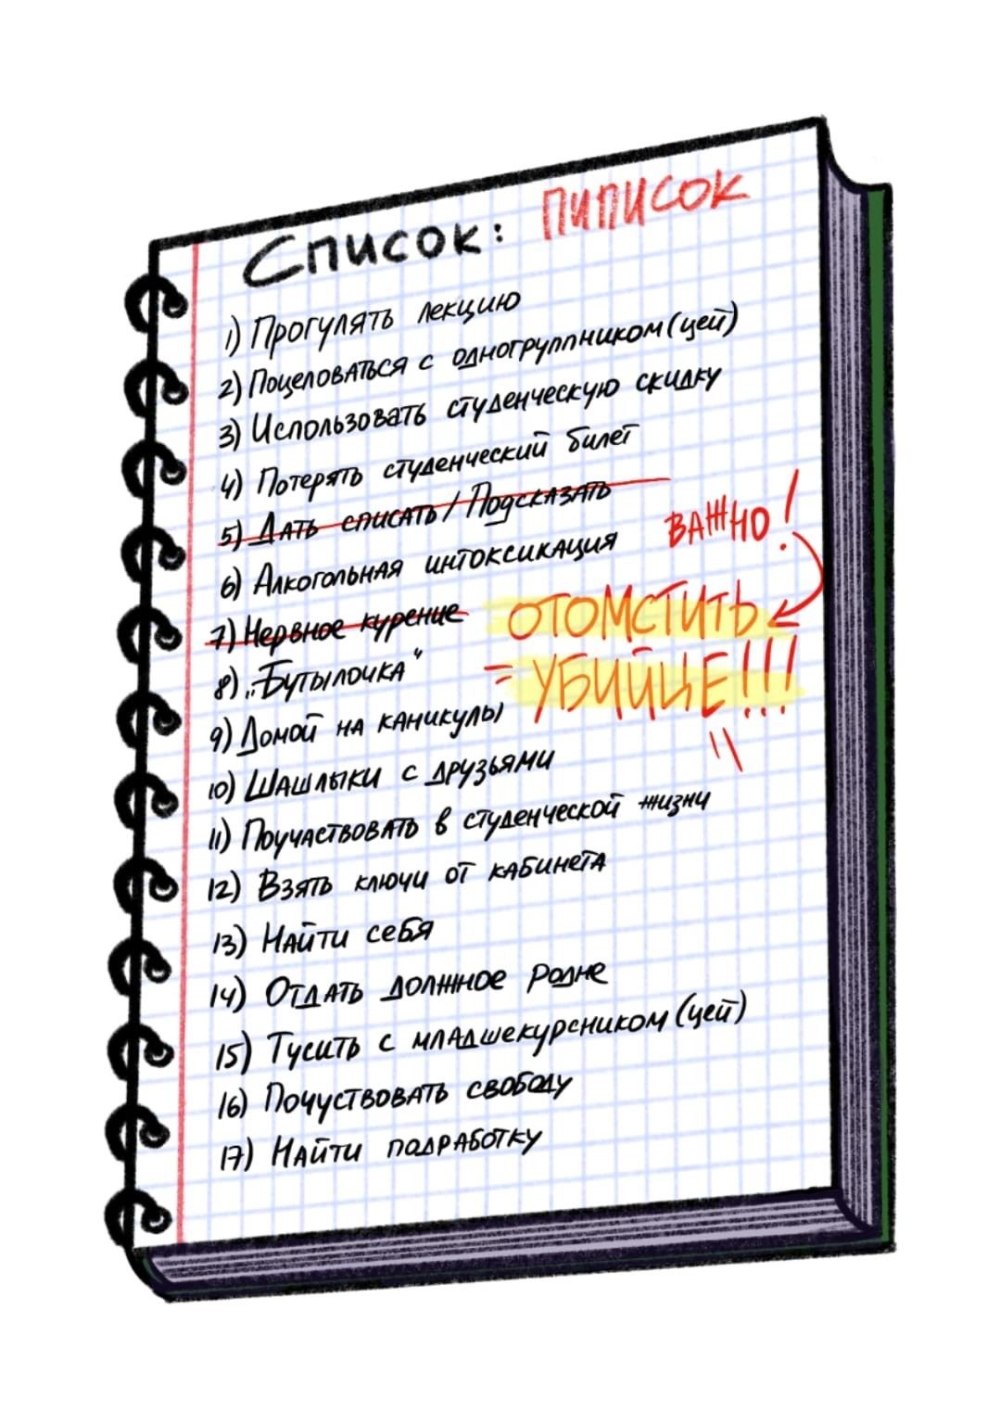 Список: ПИПИСОК
1) Прогулять лекцию
2) Поцеловаться с одногруппником(цей)
3) Использовать студенческую скидку
4) Потерять студенческий билет
5) Дать списать / Подсказать
ВАЖНО!
6) Алкогольная интоксикация
ОТОМСТИТЬ
7) Нервное курение
УБИЙЦЕ!!!
8) „Бутылочка“
9) Домой на каникулы
10) Шашлыки с друзьями
11) Поучаствовать в студенческой жизни
12) Взять ключи от кабинета
13) Найти себя
14) Отдать должное родне
15) Тусить с младшекурсником(цей)
16) Почуствовать свободу
17) Найти подработку